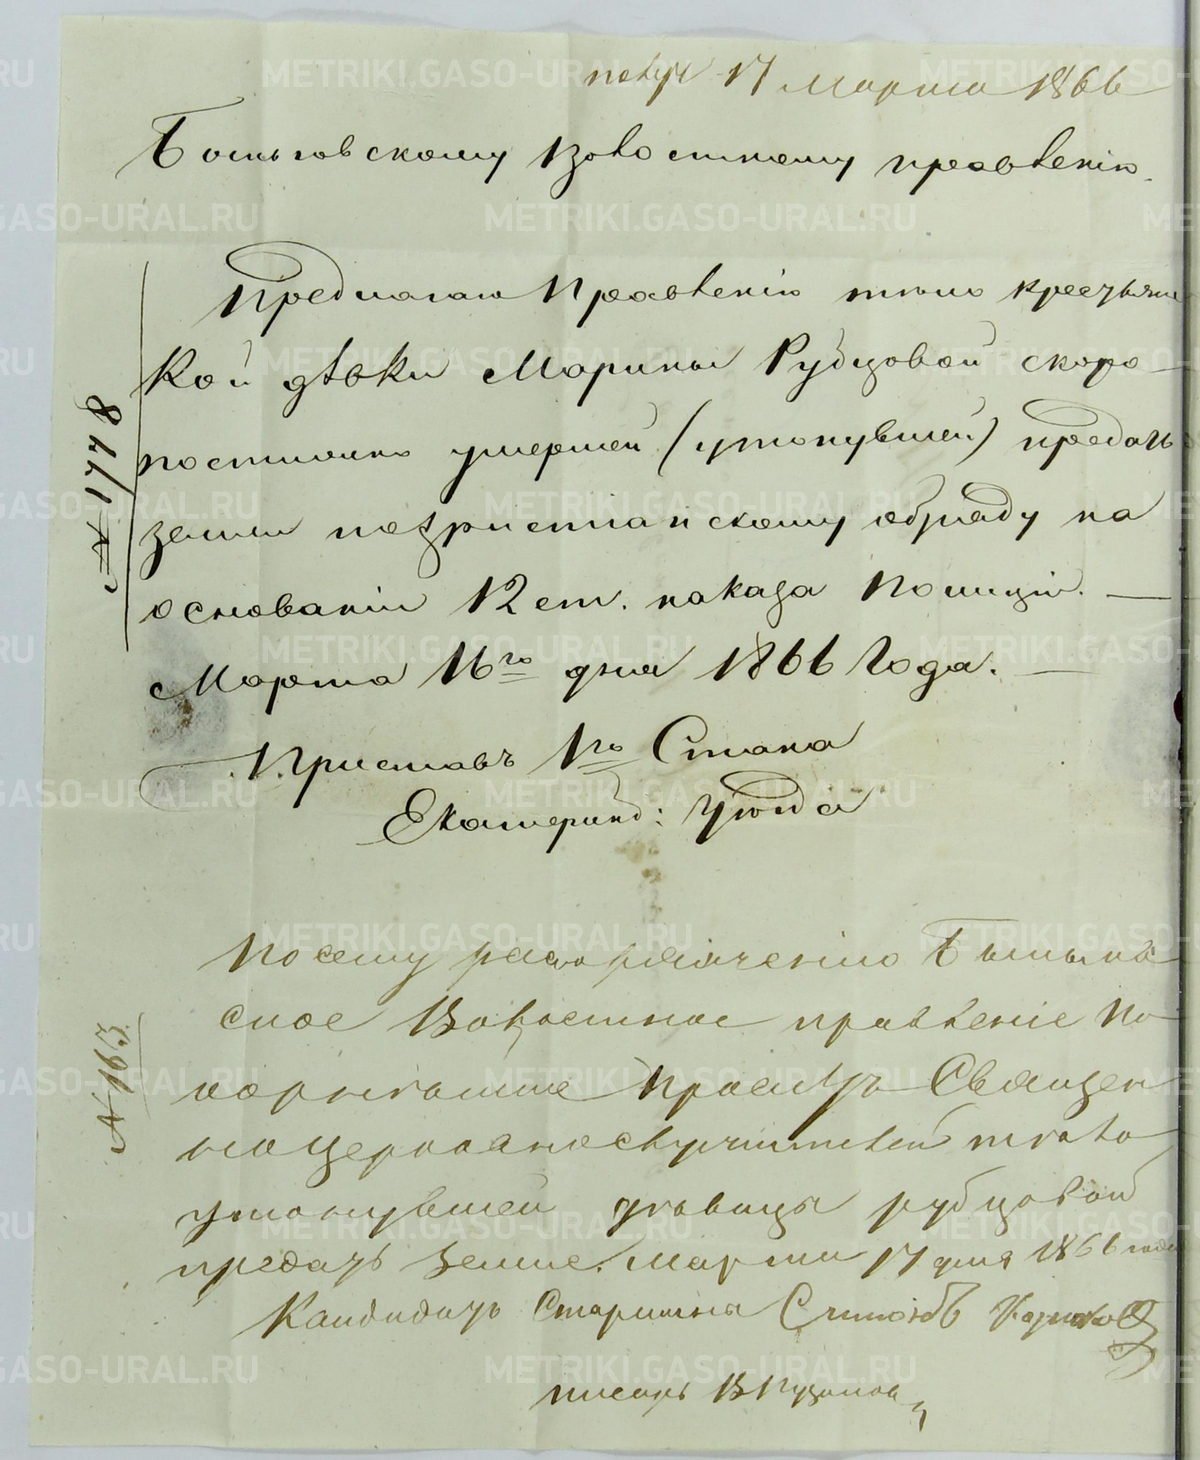 получ 17 Марта 1866
Волостному правленію.
Предлагаю Правленію тело крестьянс
кой дѣвки Марины Рубцовой скоро
постижно умершей (утонувшей) предать
земли похристіанскому обряду на
основаніи 12 ст. наказа Полиціи.
Марта 16го дня 1866 Года.
№ 1778
Приставъ 1го Стана
Екатеринб: Уѣзда
Посему распоряженію
ское Волостное правленіе По
корнѣйше Проситъ Священ
ноцерковнослужителей тѣло
утонувшей дѣвицы рубцовой
предать земле. Марта 17 дня 1866 года
№ 163
Кандидатъ Старшины
писарь